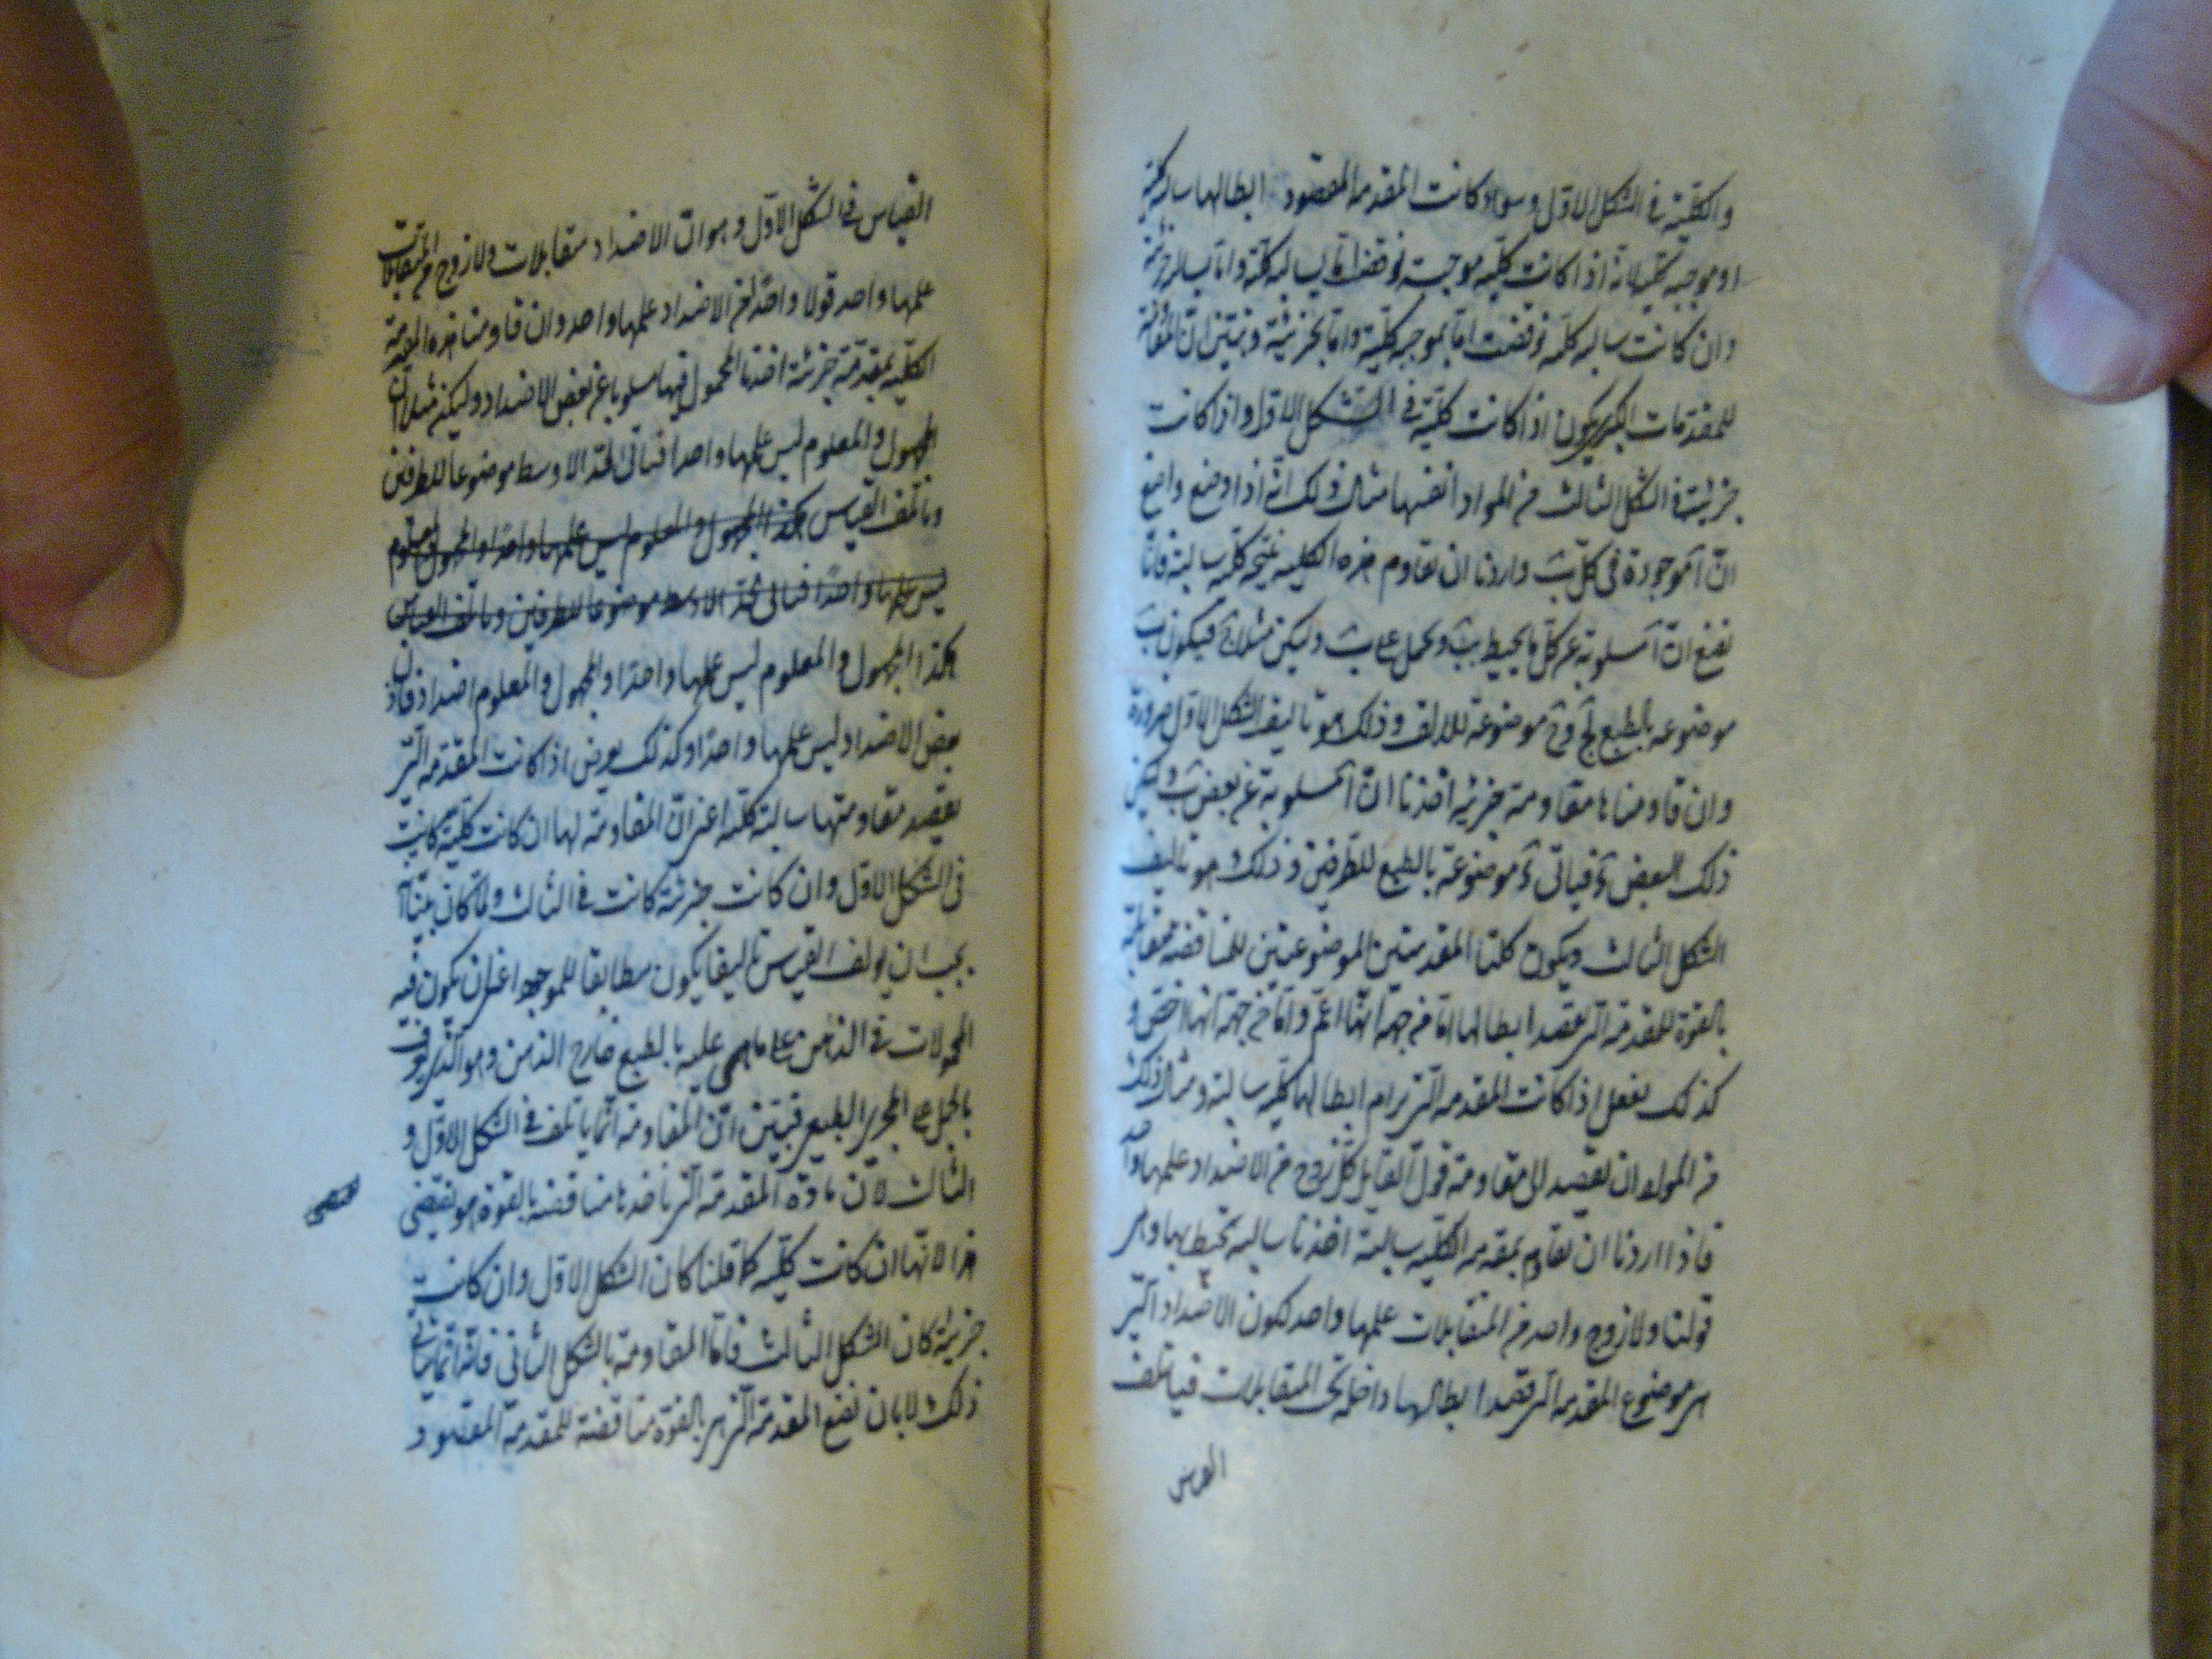 والكلية في الشكل الاول وسواء كانت المقدمة المقصود ابطالها سالبة كلية
او موجبة كلية لانه اذا كانت كلية موجبة نوقضت اما بسالبة كلية واما بسالبة جزئية
وان كانت سالبة كلية نوقضت اما بموجبة كلية واما بجزئية وتبين ان المقاومة
للمقدمات الكبرى يكون اذا كانت كلية في الشكل الاول واذا كانت
جزئية في الشكل الثالث من المواد انفسها مثال ذلك انه اذا وضع واضع
ان آ موجودة في كل ب واردنا ان نقاوم هذه الكلية بنتيجة كلية سالبة فانا
نضع ان آ مسلوبة عن كل ما يحيط ب ويحمل على ب وليكن مثلا ج فيكون ب
موضوعة بالطبع لج وج موضوعة للالف وذلك هو تاليف الشكل الاول ضرورة
وان قاومناها مقاومة جزئية اخذنا ان آ مسلوبة عن بعض ب وليكن
ذلك البعض فياتي موضوعة بالطبع للطرفين وذلك هو تاليف
الشكل الثالث ويكون كلتا المقدمتين الموضوعتين للمناقضة مقابلة
بالقوة للمقدمة التي نقصد ابطالها اما من جهة انها اعم واما من جهة انها اخص و
كذلك نفعل اذا كانت المقدمة التي نرام ابطالها كلية سالبة ومثال ذلك
من المواد ان نقصد الى مقاومة قول القايل كل زوج من الاضداد علمها واحد
فاذا اردنا ان نقاوم بمقدمة الكلية سالبة اخذنا سالبة تحيط بها وهي
قولنا ولا زوج واحد من المتقابلات علمها واحد لكون الاضداد التي
هي موضوع المقدمة التي قصد ابطالها داخلة تحت المتقابلات فيأتلف
القياس
القياس في الشكل الاول وهو ان الاضداد متقابلات ولا زوج من المتقابلات
علمها واحد قولا واحدا من الاضداد علمها واحد وان قاومنا هذه المقدمة
الكلية بمقدمة جزئية اخذنا المحمول فيها مسلوبا عن بعض الاضداد وليكن مثلا ان
المجهول والمعلوم ليس علمها واحدا فياتي الحد الاوسط موضوعا للطرفين
وياتلف القياس هكذا المجهول والمعلوم ليس علمها واحدا والمجهول والمعلوم
ليس علمها واحدا فياتي الحد الاوسط موضوعا للطرفين وياتلف القياس
هكذا المجهول والمعلوم ليس علمها واحدا والمجهول والمعلوم اضداد فاذن
بعض الاضداد ليس علمها واحدا وكذلك يعرض اذا كانت المقدمة التي
يقصد مقاومتها سالبة كلية اعني ان المقاومة لها ان كانت كلية كانت
في الشكل الاول وان كانت جزئية كانت في الثالث ولما كان بينا
يجب ان يولف القياس تاليفا يكون مطابقا للموجود اعني ان يكون فيه
المحمولات في الذهن على ما هي عليه بالطبع خارج الذهن وهو الذي يعرف
بالحمل على المجرى الطبيعي فتبين ان المقاومة انما ياتلف في الشكل الاول و
الثالث لان مادة المقدمة التي ناخذها مناقضة بالقوة هو نقيضي
تقتضي
هذا لانها ان كانت كلية كما قلنا كان الشكل الاول وان كانت
جزئية كان الشكل الثالث فاما المقاومة بالشكل الثاني فانه انما ياتي
ذلك لا بان نضع المقدمة التي هي بالقوة مناقضة للمقدمة المقصود